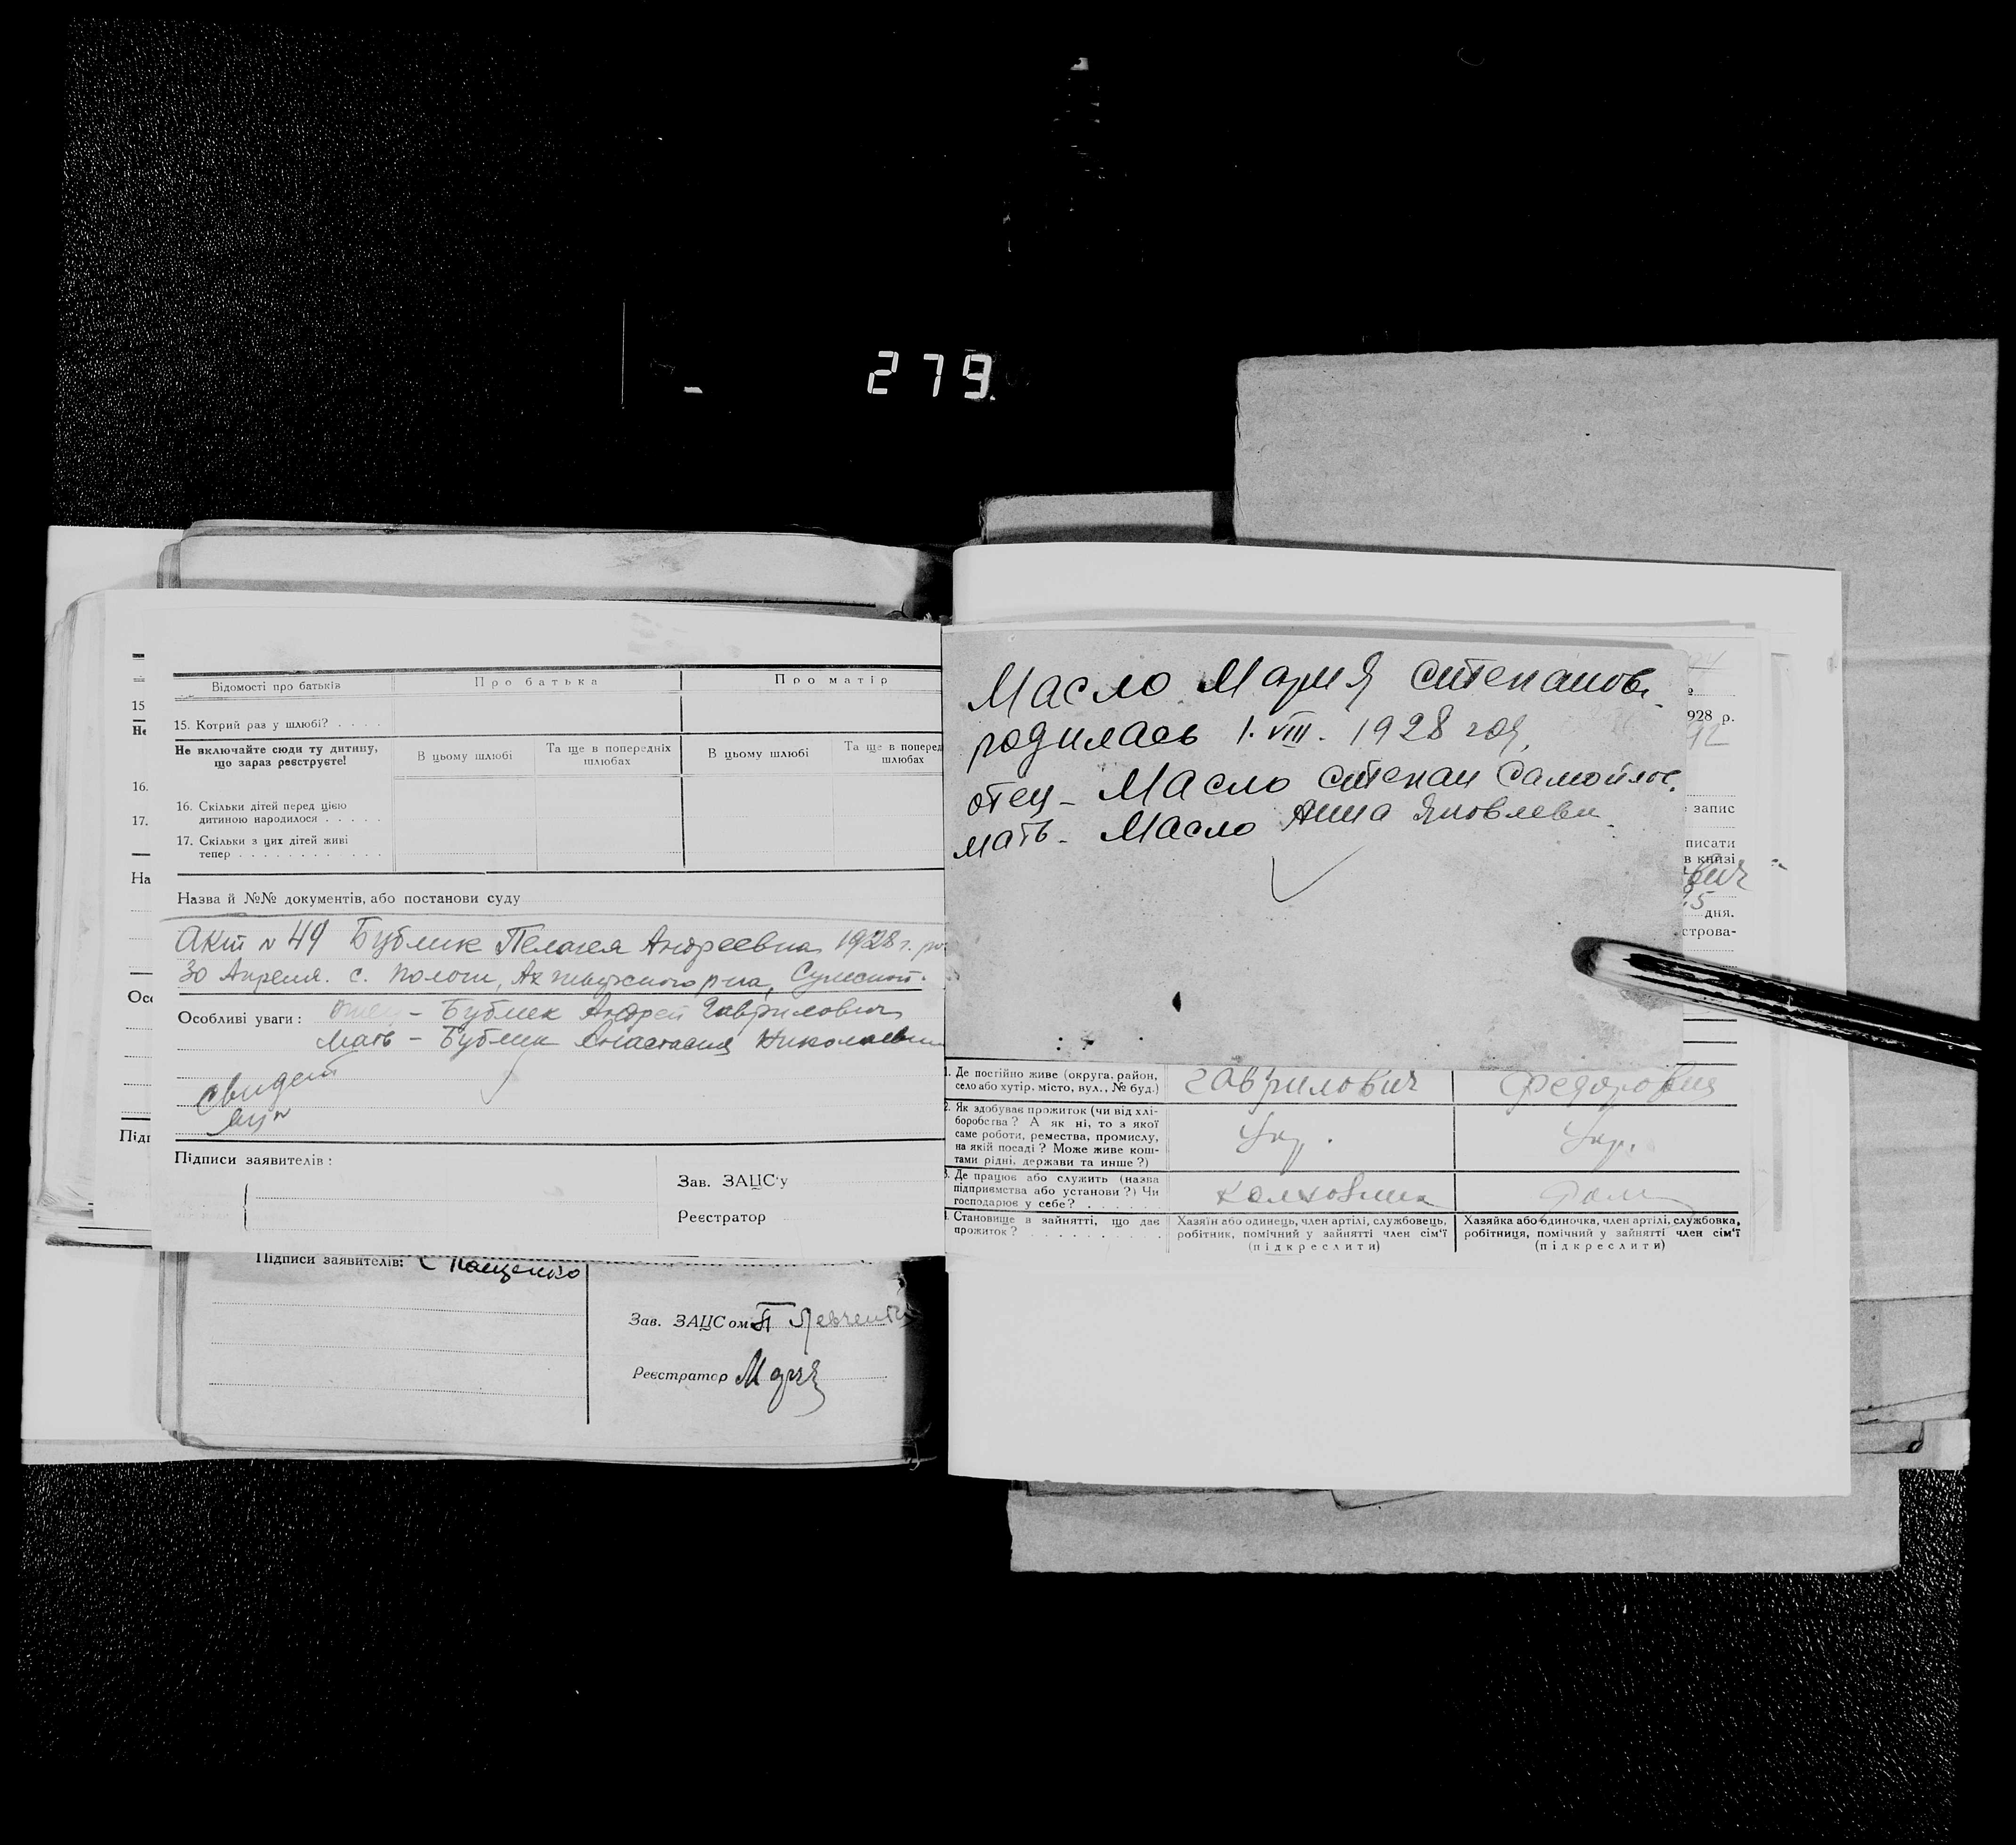 279.
Відомості про батьків
Про батька
Про матір
15
15. Котрий раз у шлюбі? . . . .
Не
Не включайте сюди ту дитину,
що зараз реєструєте!
В цьому шлюбі
Та ще в попередніх
шлюбах
В цьому шлюбі
Та ще в поперед
шлюбах
16.
16. Скільки дітей перед цією
дитиною народилося . . . . .
17.
17. Скільки з цих дітей живі
тепер . . . . . . . . . . . .
На
Назва й №№ документів, або постанови суду
Акт N 49 Бублик Пелагея Андреевна 1928 г.
30 Апреля. с. Пологи, р-на, Сумской.
Особливі уваги:
Отец - Бублик Андрей Гаврилович
Мать - Бублик Анастасия Николаевн
свидет
Підписи заявителів:
Зав. ЗАЦС'у
Реєстратор
Підписи заявителів:
Зав. ЗАЦСом
Реєстратор
Масло Мария степанов.
родилась 1. VIII. 1928 год.
отец - Масло степан Самойлов.
мать - Масло Анна Яковлевн.
928 р.
запис
писати
в книзі
дня.
строва-
1. Де постійно живе (округа, район,
село або хутір, місто, вул., № буд.)
Гаврилович
2. Як здобуває прожиток (чи від хлі-
боробства? А як ні, то з якої
саме роботи, ремества, промислу,
на якій посаді? Може живе кош-
тами рідні, держави та инше?)
Укр.
Укр.
3. Де працює або служить (назва
підприємства або установи?) Чи
господарює у себе? . . . . . .
4. Становище в зайнятті, що дає
прожиток? . . . . . . . . . .
Хазяїн або одинець, член артілі, службовець,
робітник, помічний у зайнятті член сім'ї
(підкреслити)
Хазяйка або одиночка, член артілі, службовка,
робітниця, помічний у зайнятті член сім'ї
(підкреслити)